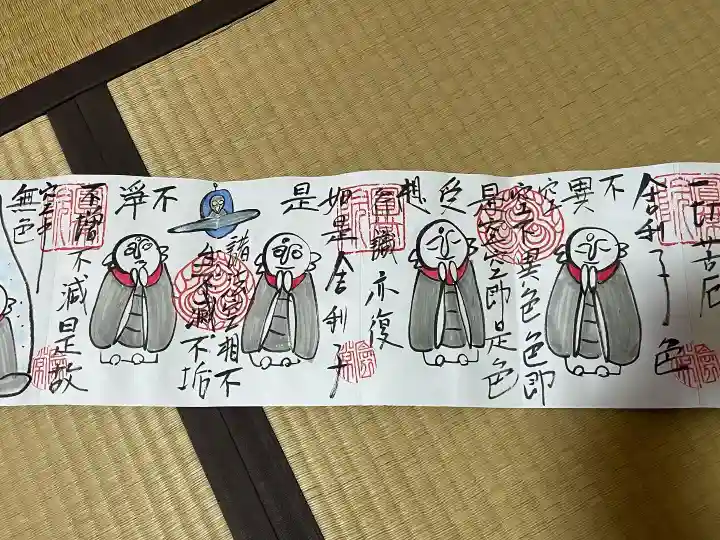 一切苦厄
舍利子 色
不異空
空不異色色即
是空空即是色
受想
行識亦復
如是舍利子
是
諸法空相不
生不滅不垢
不淨
不増不減是故
空中
無色